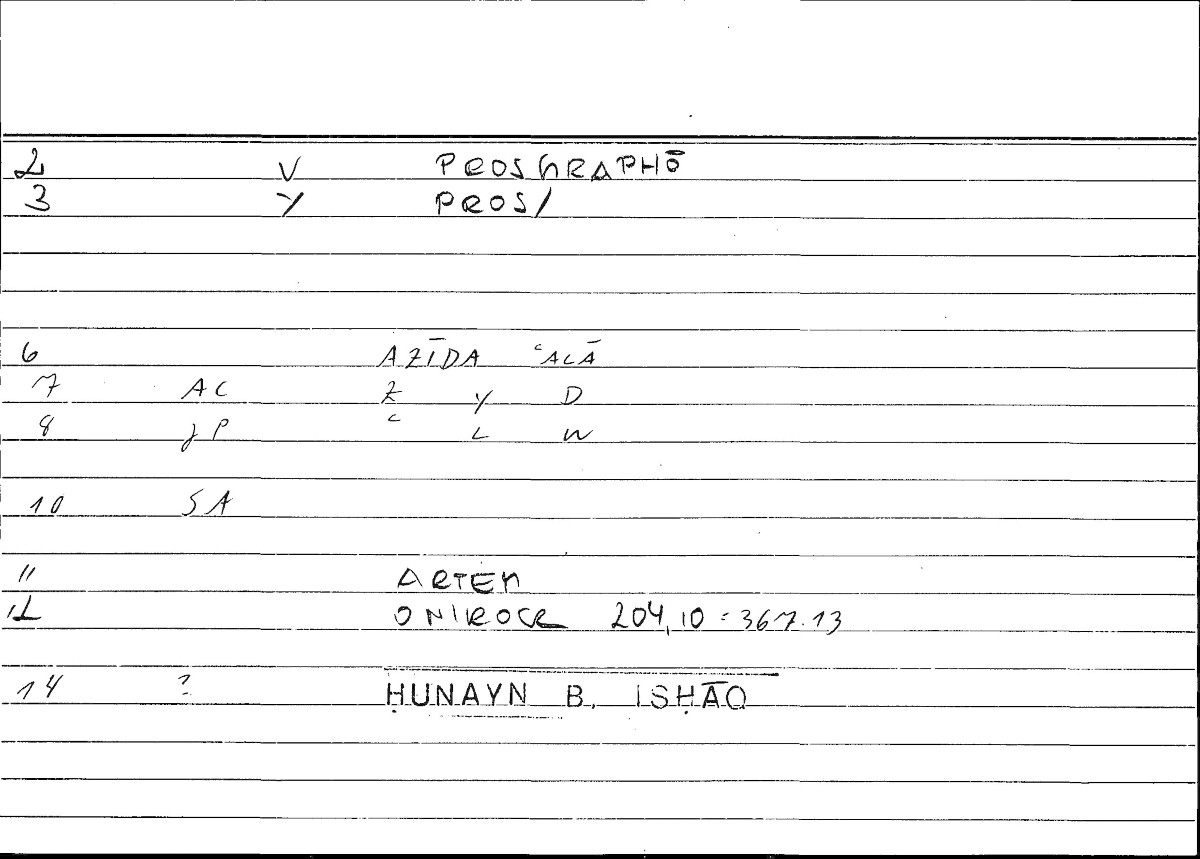 2 V PROSGRAPHŌ
3 Y PROS/
6 AZĪDA ʿALĀ
7 AC Z Y D
8 JP ʿ L W
10 SA
11 ARTEM
12 ONIROCR 204,10 = 367.13
14 ? ḤUNAYN B. ISḤĀQ